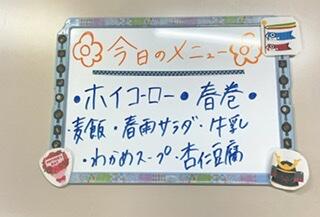 今日のメニュー
・ホイコーロー・春巻・
・麦飯・春雨サラダ・牛乳
・わかめスープ・杏仁豆腐